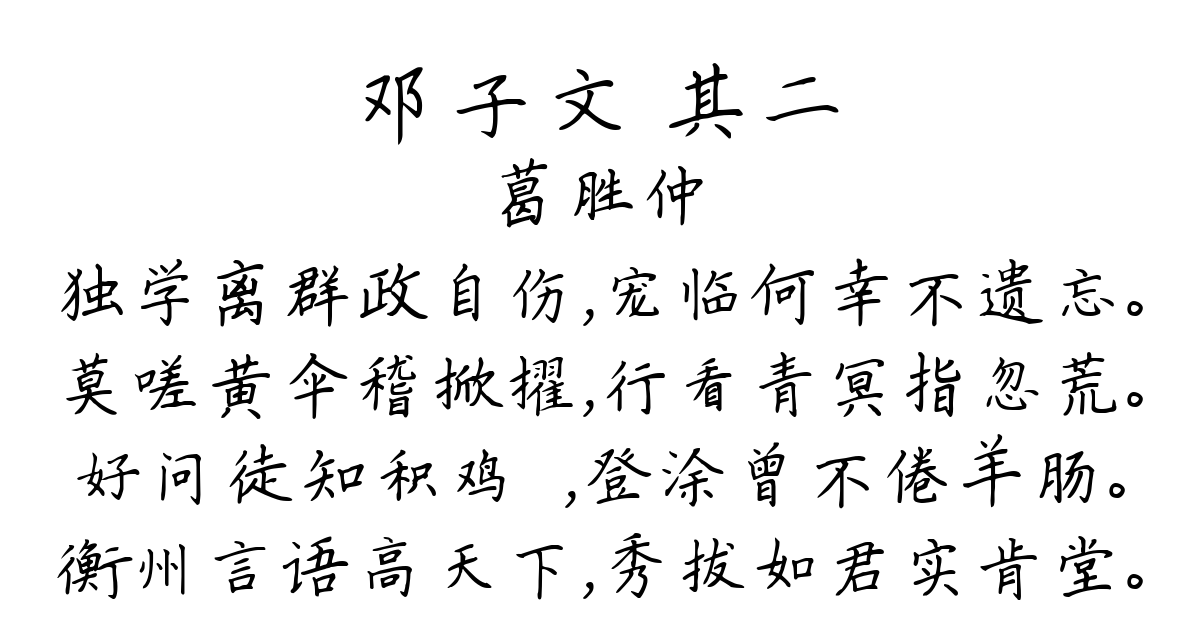 邓子文 其二
葛胜仲
独学离群政自伤,宠临何幸不遗忘。
莫嗟黄伞稽掀擢,行看青冥指忽荒。
好问徒知积鸡 ,登涂曾不倦羊肠。
衡州言语高天下,秀拔如君实肯堂。